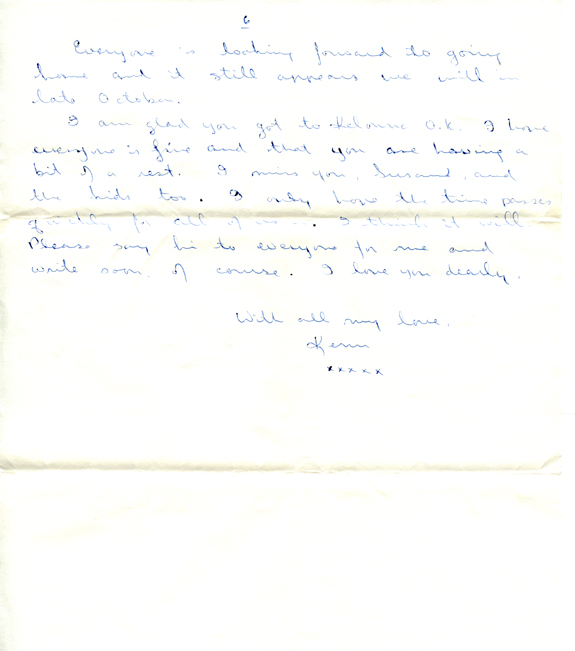 6
Everyone is looking forward to going
home and it still appears we will in
late October.
I am glad you got to Kelowna O.K. I hope
everyone is fine and that you are having a
bit of a rest. I miss you, and
the kids too. I only hope the time passes
quickly for all of us. I think it will.
Please say hi to everyone for me and
write soon, of course. I love you dearly.
With all my love,
xxxxx